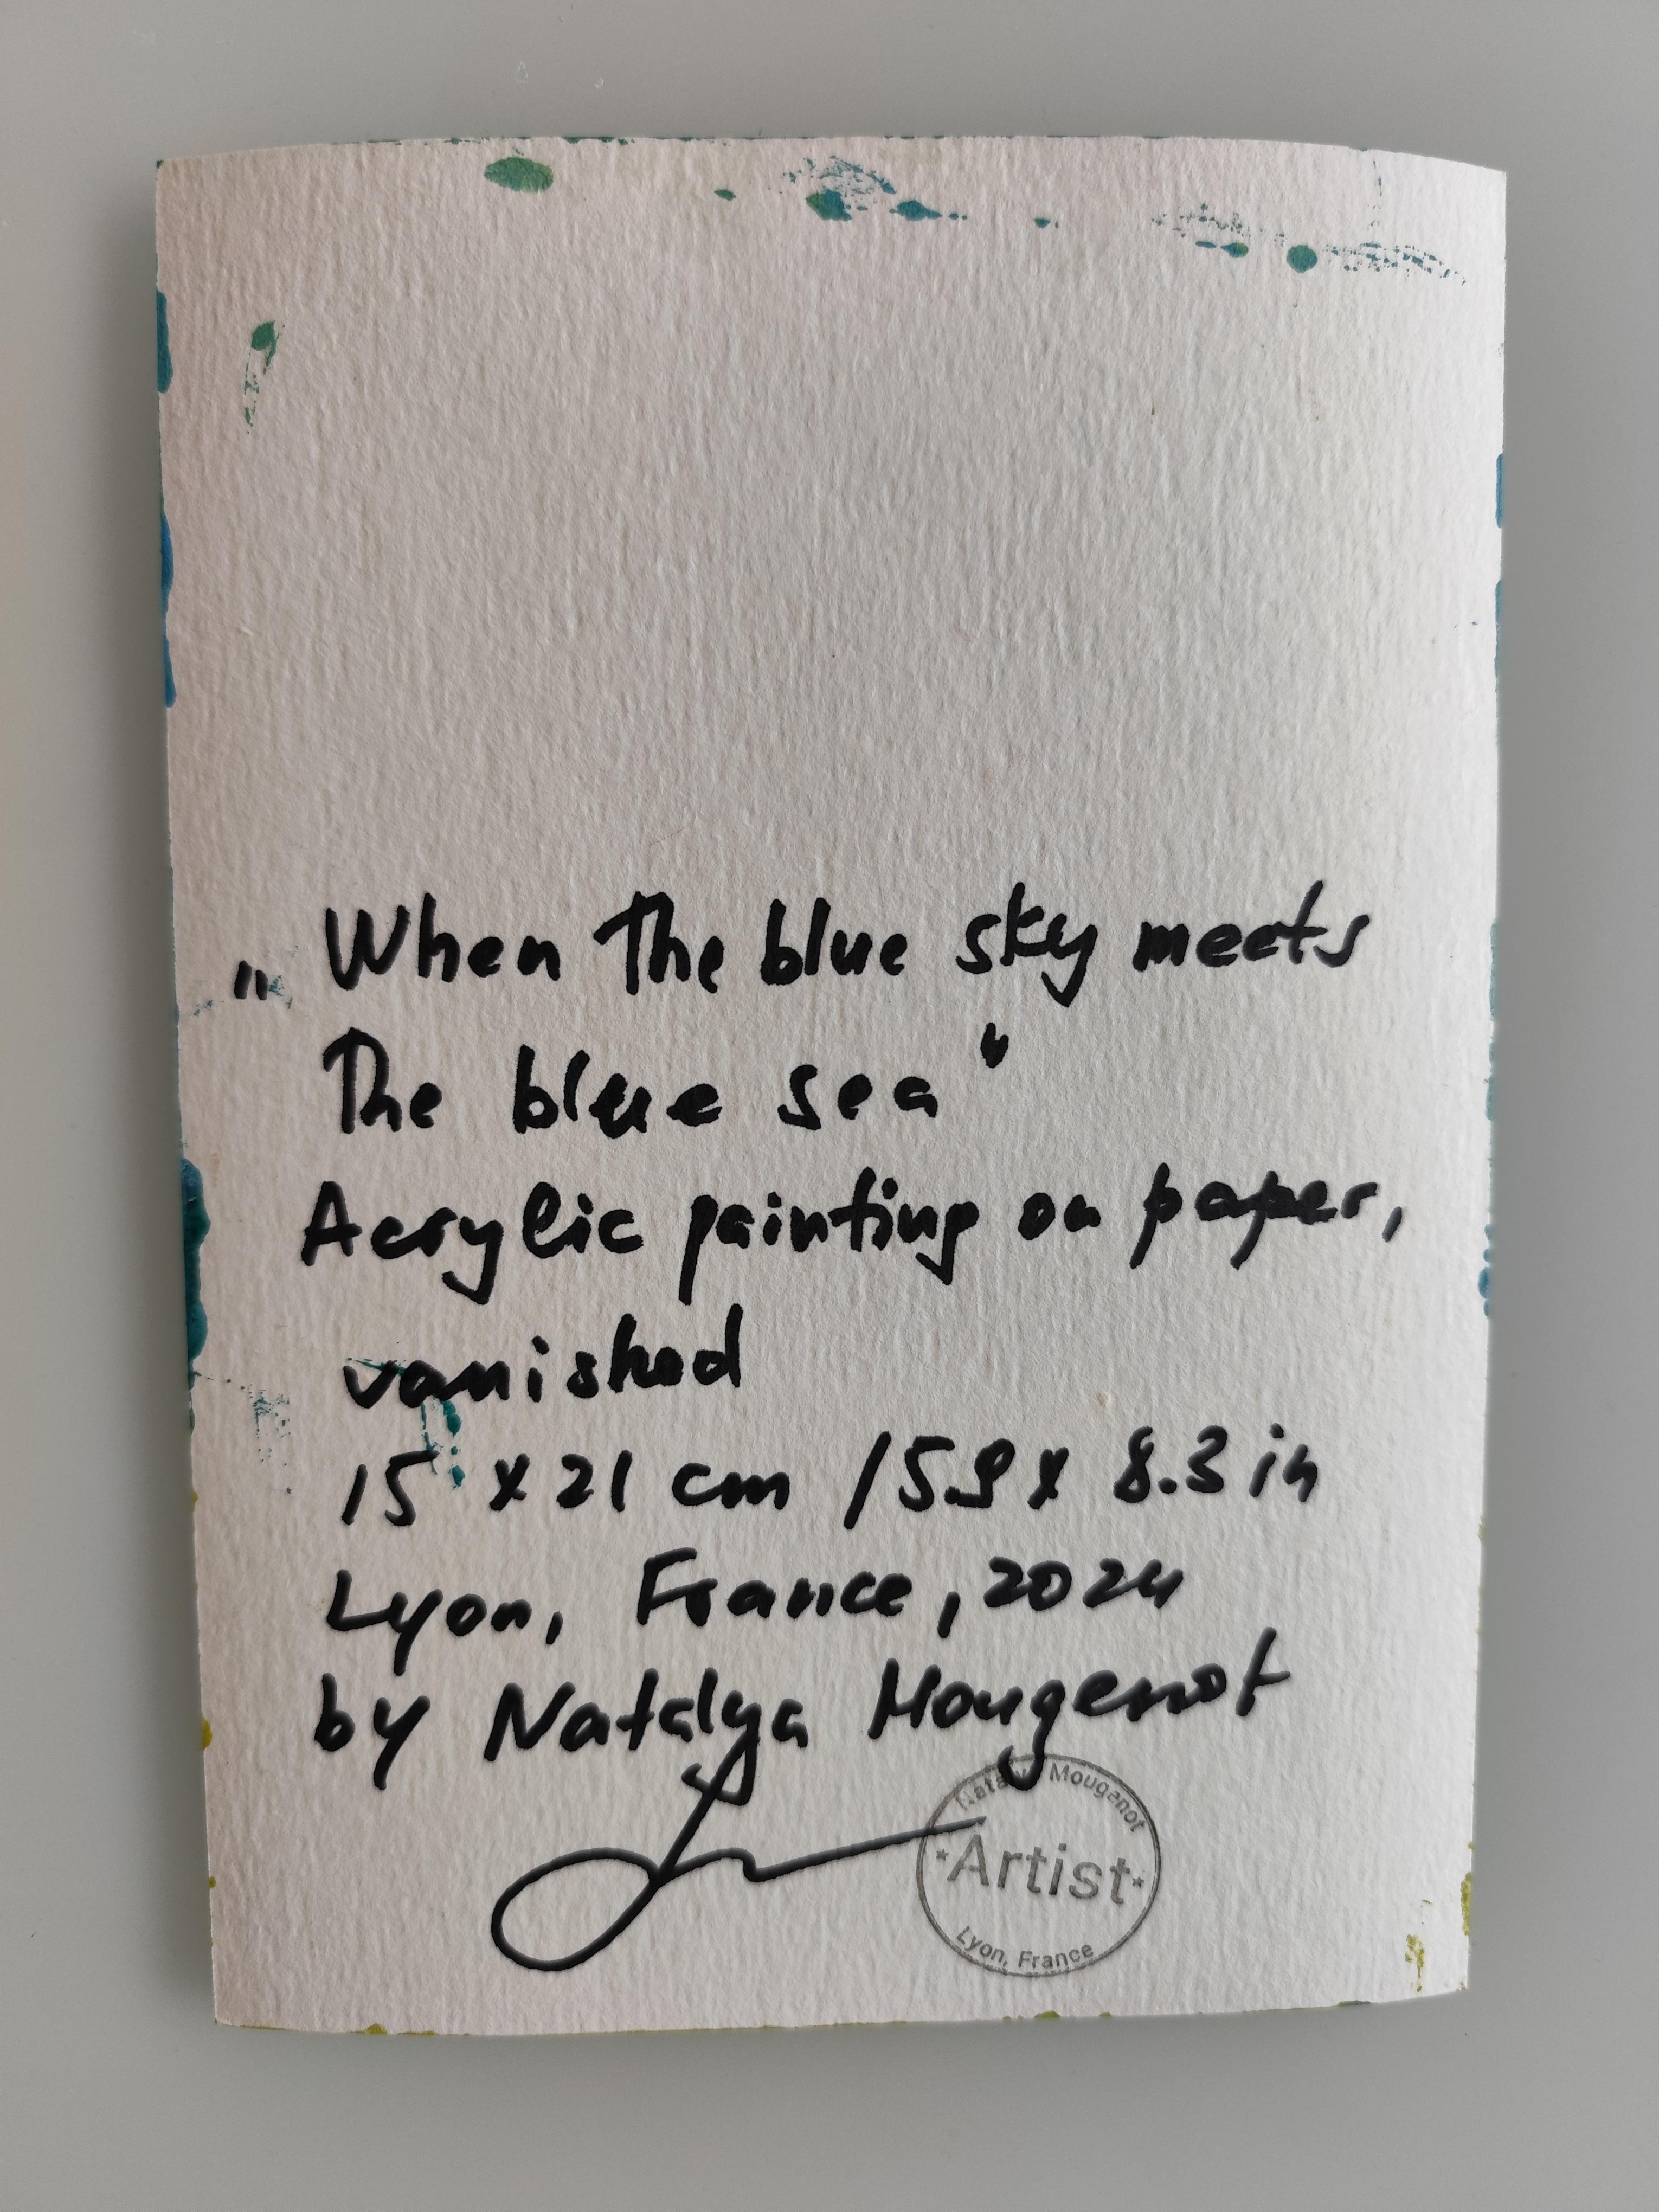 „When The blue sky meets
The blue sea“
Acrylic painting on paper,
vanished
15 x 21 cm / 5.9 x 8.3 in
Lyon, France, 2024
by Natalya Mougenot
Mougenot
Artist
Lyon, France